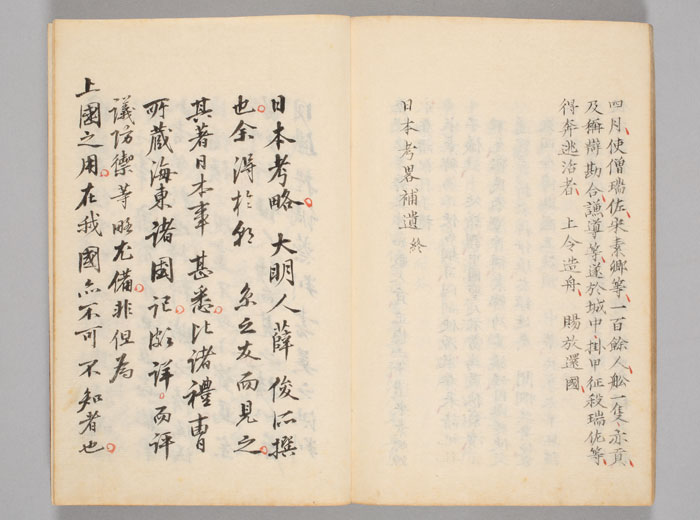 四月使僧瑞佐宋素卿等一百餘人舩一隻亦貢
及稱辯勘合謙導等遂於城中掛甲征殺瑞佐等
得奔逃治者 上令造舟 賜放還國
日本考畧補遺終
日本考略 大明人薛俊所撰
也余得於 之友而見之
其著日本事 甚悉比諸禮曹
所藏海東諸國記頗詳而評
議防禦等 尤備非但為
上國之用在我國亦不可不知者也